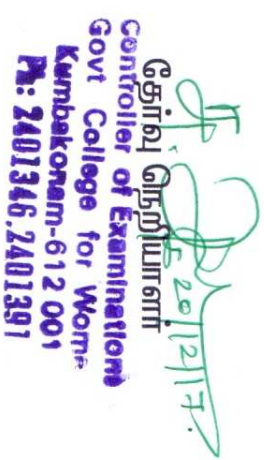 20/12/17.
தேர்வு நெறியாளர்
Controller of Examinations
Govt College for Wome
Kumbakonam-612 001
2401346, 2401391